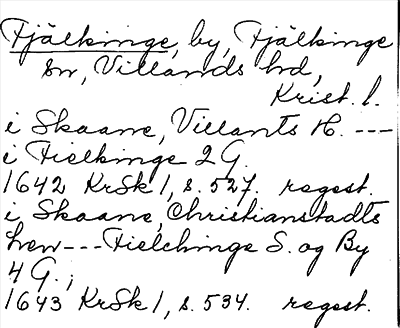 Fjälkinge, by, Fjälkinge
sn, Villands hd,
Krist. l.
i Skaane, Villants H. ---
i Fielkinge 2 G.
1642 KrSk 1, s. 527. regest.
i Skaane, Christianstadts
Len --- Fielchinge S. og By
4 G.;
1643 KrSk 1, s. 534. regest.